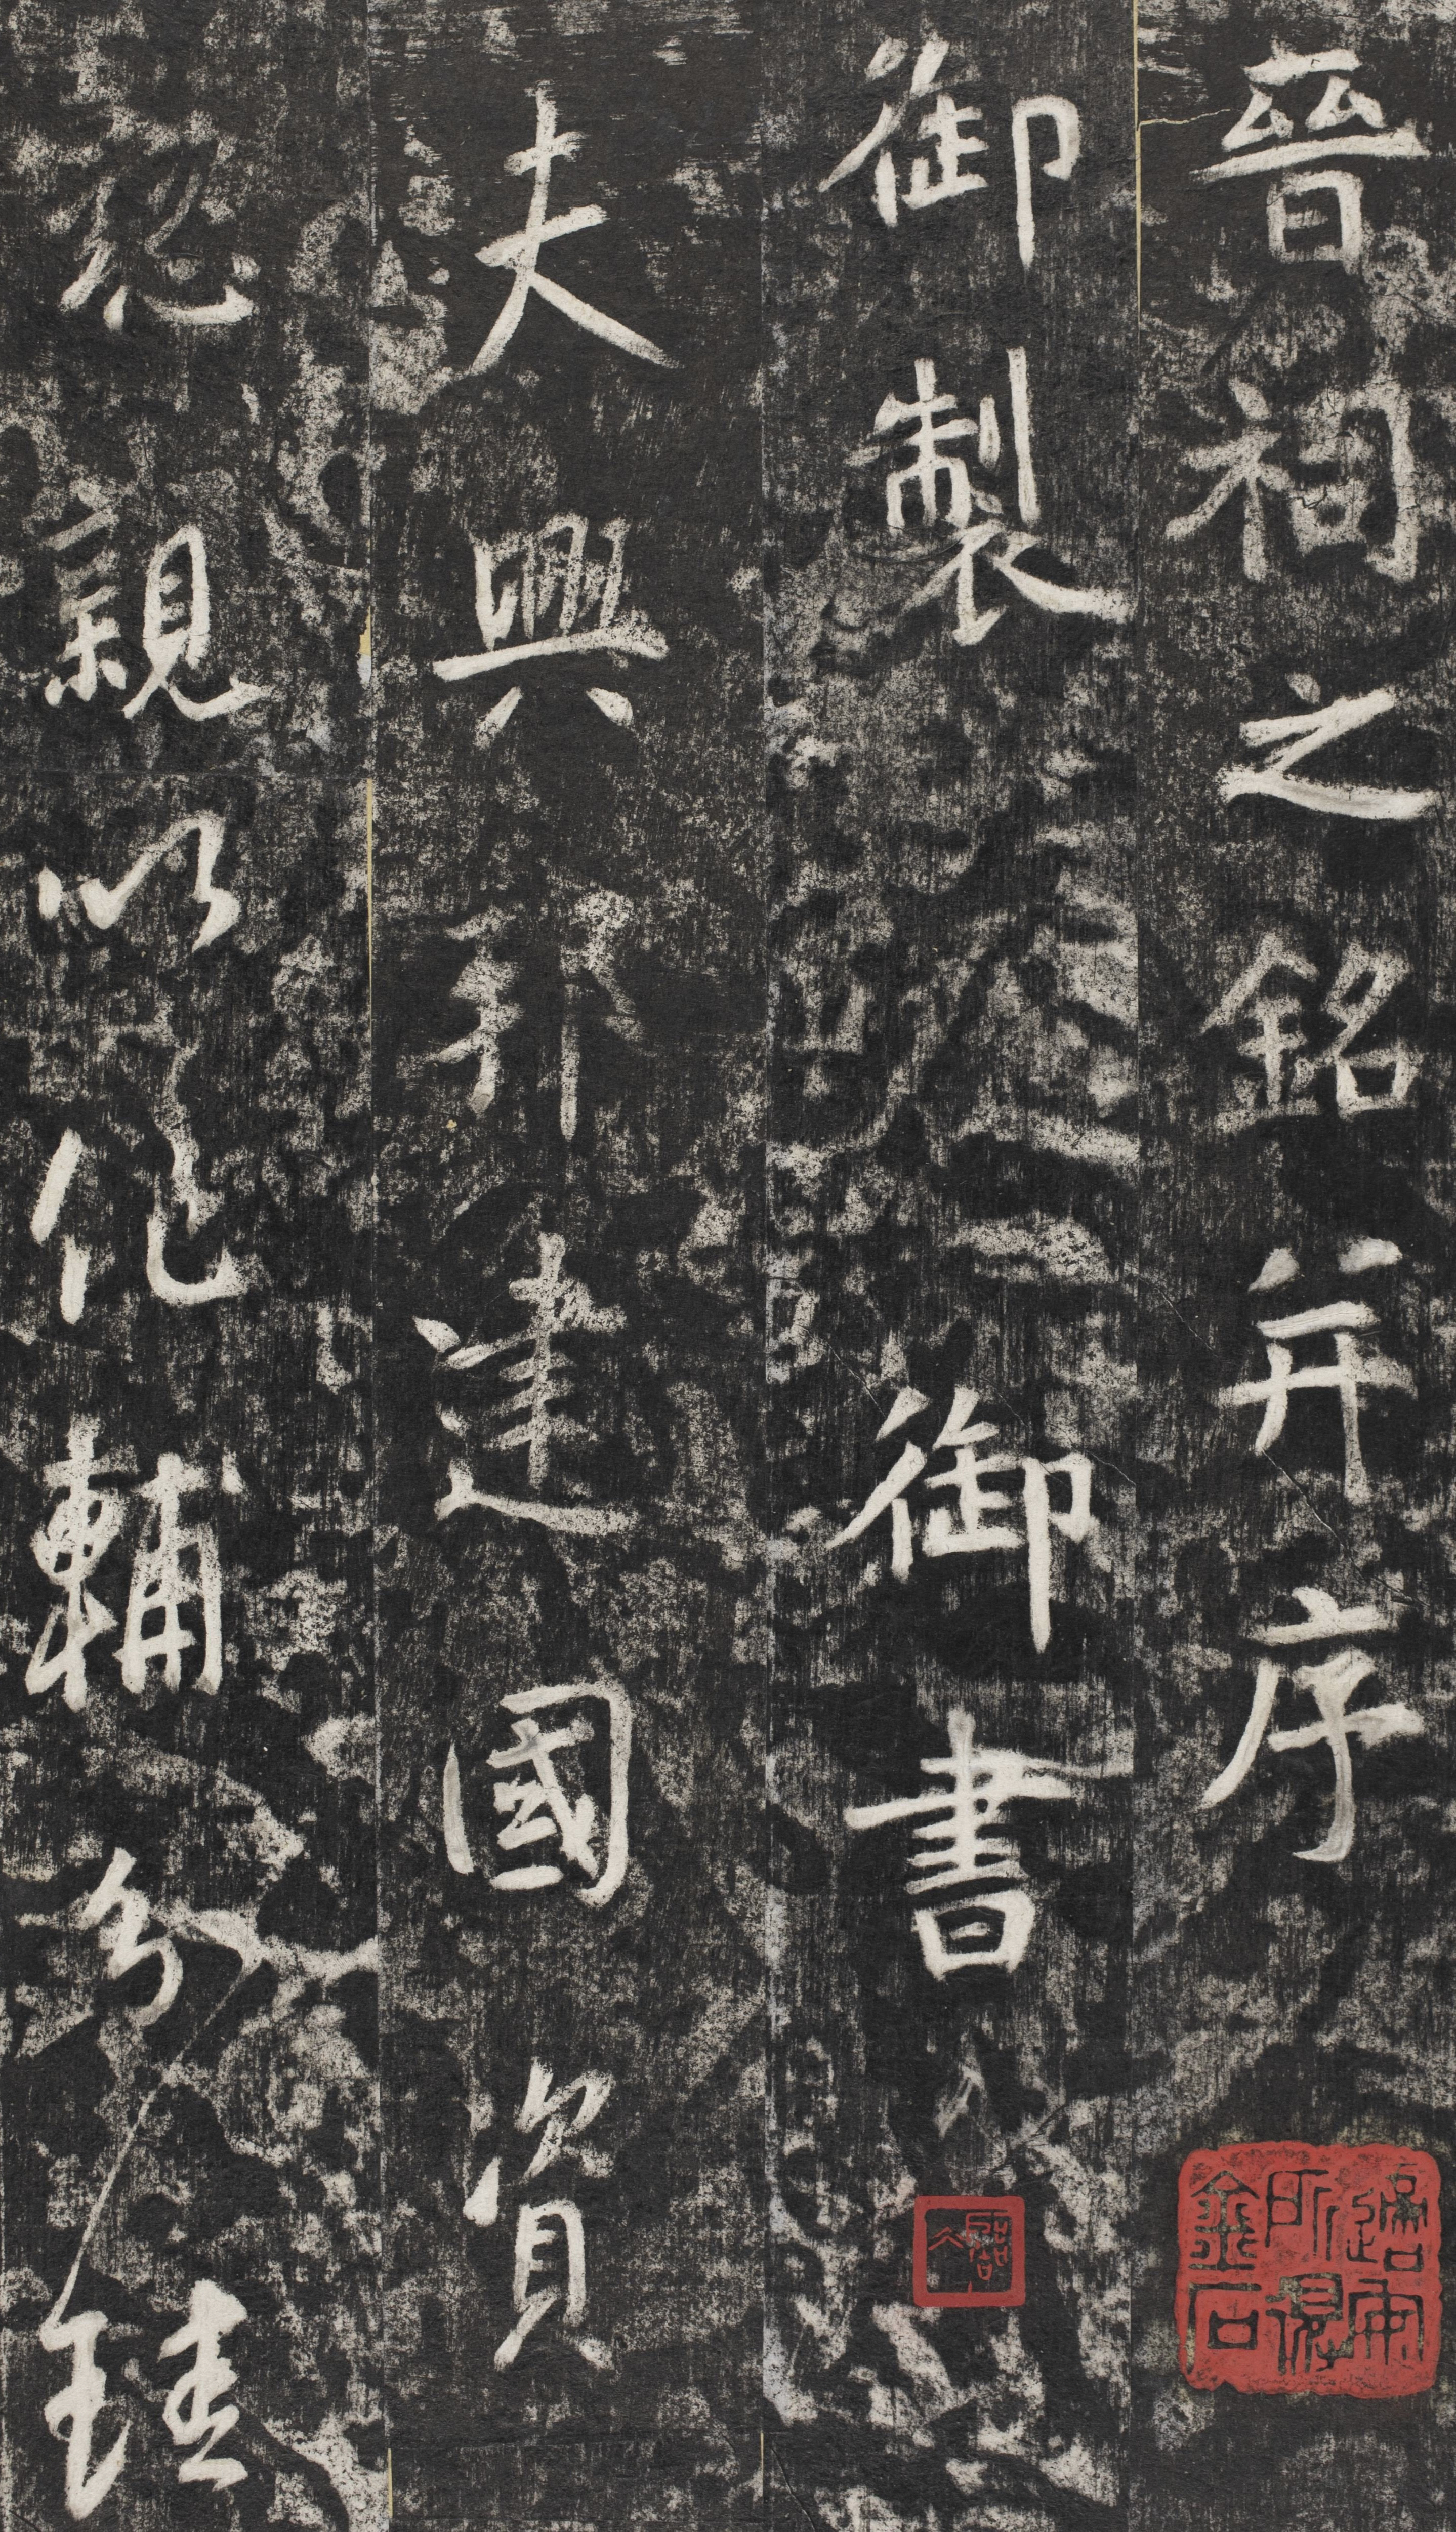 晉祠之銘并序
御製　御書
夫興邦建國資
懿親以化輔分珪
金石